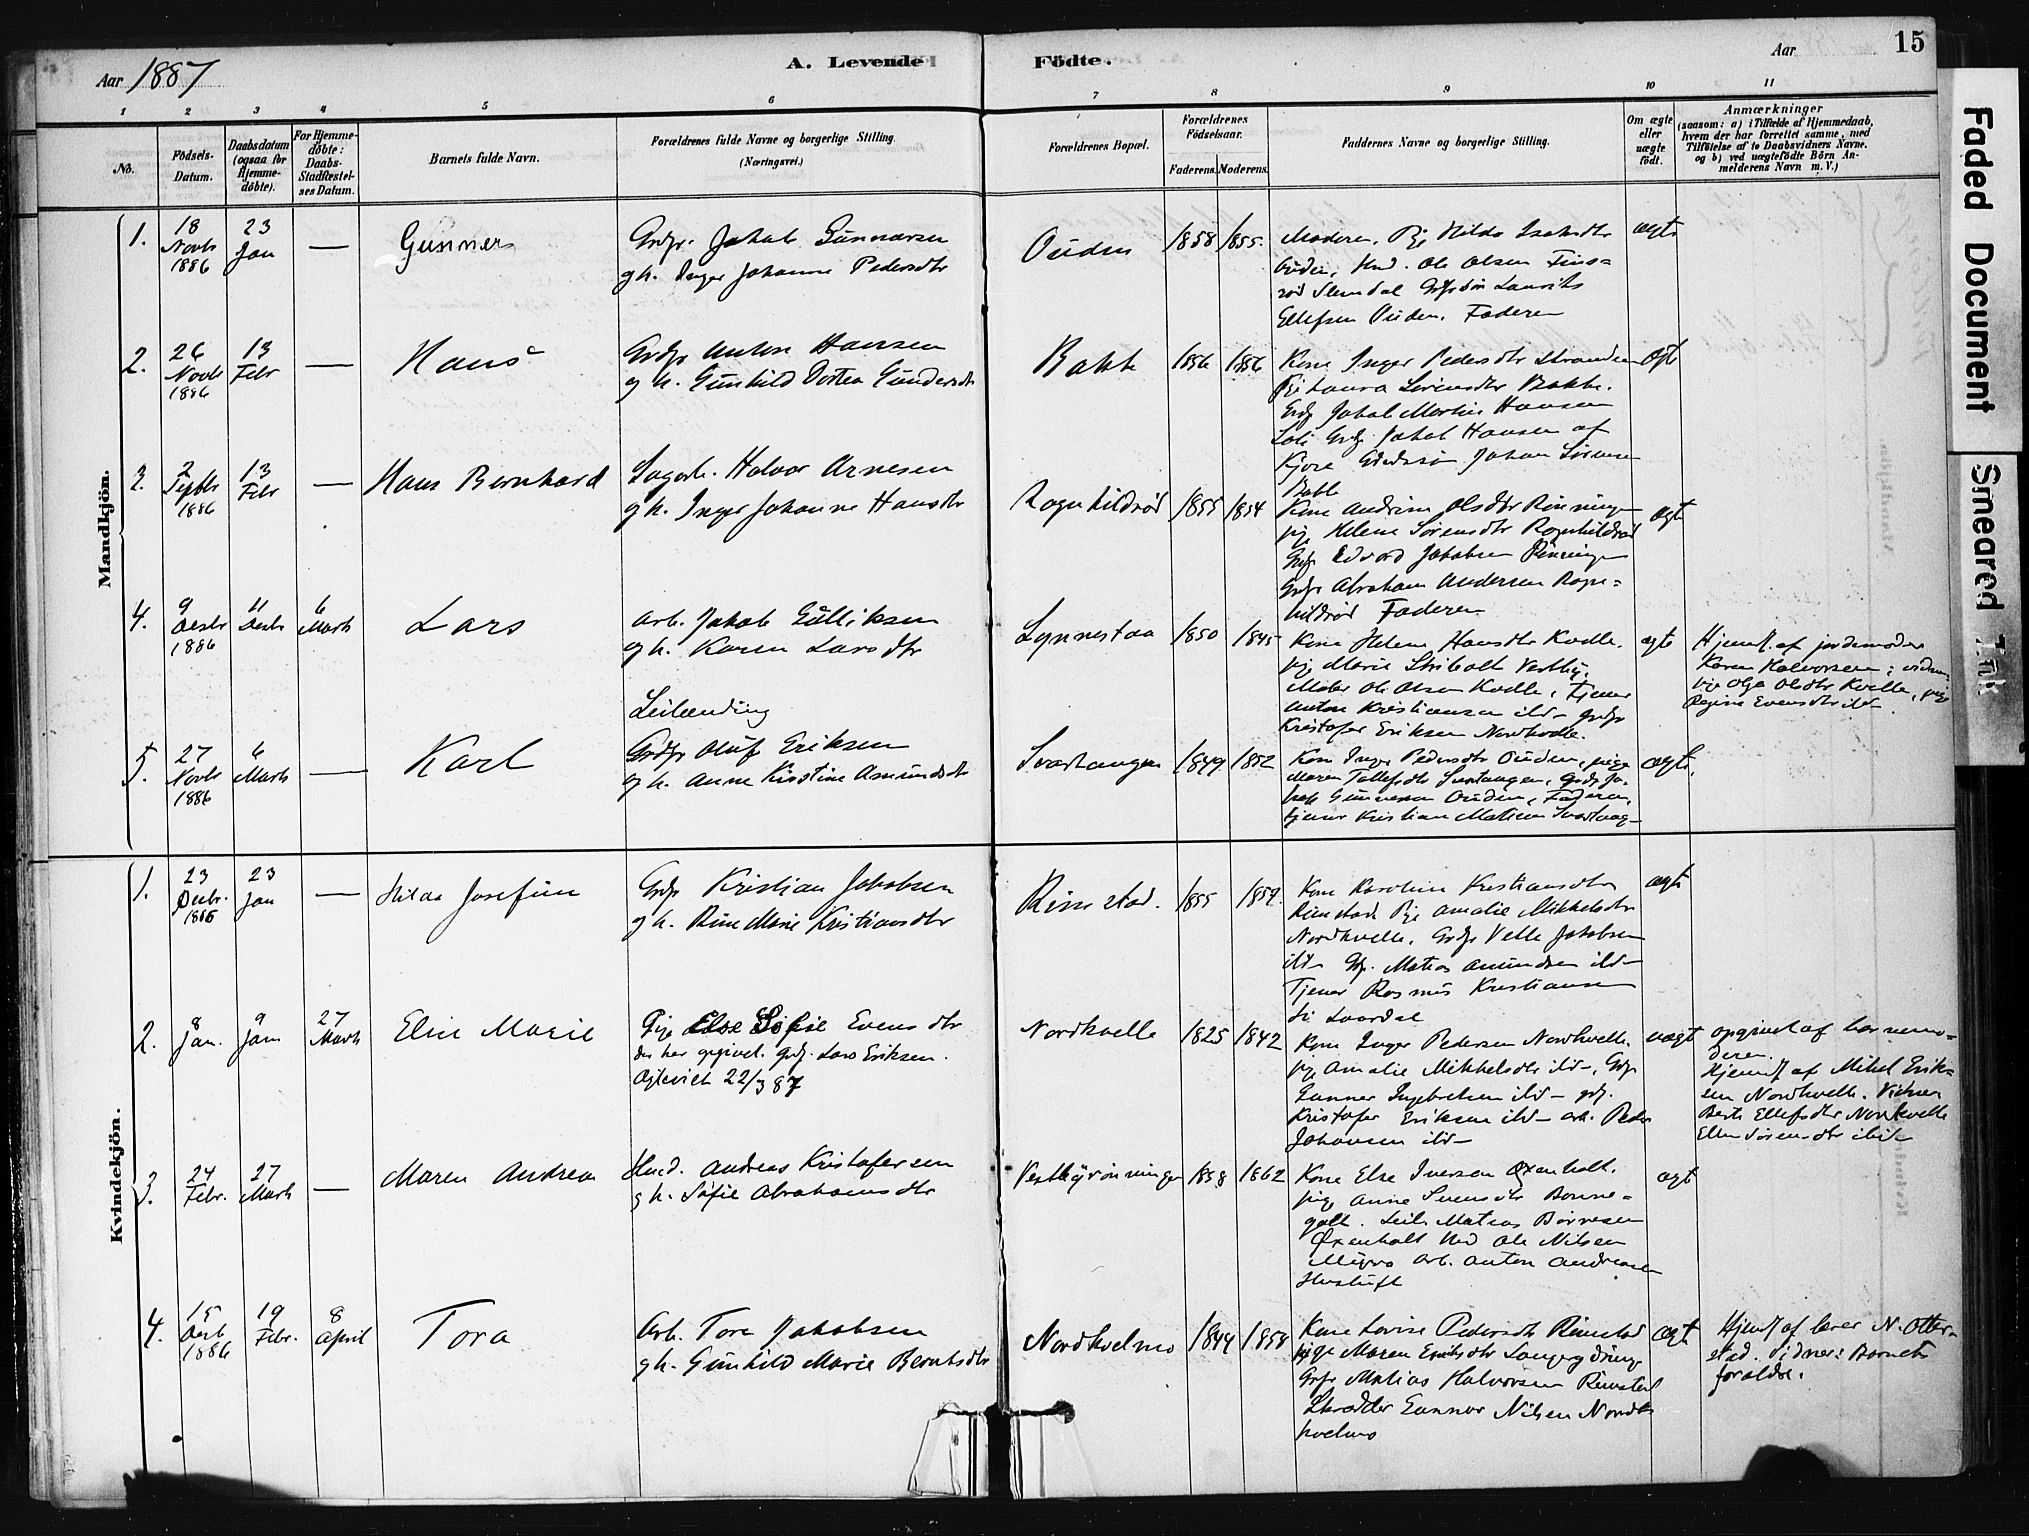 Aar 1887
A. Levende Födte.
Aar
15
1 2 3 4 5 6 7 8 9 10 11
No.
Födsels-Datum.
Daabsdatum (ogsaa for Hjemme-döbte).
For Hjemme-döbte: Daabs-Stadfæstel-ses Datum.
Barnets fulde Navn.
Forældrenes fulde Navne og borgerlige Stilling. (Næringsvei.)
Forældrenes Bopæl.
Forældrenes Födselsaar.
Faderens. Moderens.
Faddernes Navne og borgerlige Stilling.
Om ægte eller uægte födt.
Anmærkninger
(saasom: a) i Tilfælde af Hjemmedaab,
hvem der har forrettet samme, med
Tilföielse af to Daabsvidners Navne.
og b) ved uægtefödte Börn An-
melderens Navn m. V.)
Faded Document
Smeared Ink
Mandkjön.
1.
18 Novb 1886
23 Jan
—
Gunner
Grdgr. Jakob Gunnarsen
g h. Inger Johanne Pedersdtr
Ouden
1858 1855
Moderen, Pige Hilda
Ouden, Hmd. Ole Olsen
Slemdal Laurits
Ellefsen Ouden, Faderen
ægte
2.
26 Novb 1886
13 Febr
—
Hans
Grdgr Anton Hansen
g h. Gunhild Dortea Gundersdtr
Bakke
1856 1856
Kone Inger Pedersdtr
Pige Laura Sörensdtr Bakke.
Grdgr Jakob Martin Hansen
Jakob Hansen af
Kjose Johan Sörensen
Bakke
ægte
3.
2 Septbr 1886
13 Febr
—
Hans Bernhard
Sagarb. Halvor Arnesen
g h. Inger Johanne Hansdtr
Rognhildröd
1855 1854
Kone Andrine Olsdtr Rönningen
pige Helene Sörensdtr Rognhildröd
Grdgr Edvard Jakobsen Rönningen
Grdgr Abraham Andersen Rogn=
hildröd Faderen
ægte
4.
9 Decbr 1886
11 Decbr
6 Marts
Lars
Arb. Jakob Gulliksen
g h. Karen Larsdtr
Lynnestaa
1850 1845
Kone Helene Hansdtr Kvelle.
pige Marie
Maler Ole Olsen Kvelle, Tjener
Anton Kristiansen ibd— Grdgr
Kristofer Eriksen Nordkvelle.
ægte
Hjemd. af jordemoder
Karen Halvorsen;
pige Olga Olsdtr Kvelle, pige
Regine Evensdtr ibd.
5.
27 Novb 1886
6 Marts
—
Karl
Leilænding
Grdgr Oluf Eriksen
g h. Anne Kristine Amundsdtr
Svartangen
1849 1852
Kone Inger Pedersdtr Ouden, pige
Maren Tollefsdtr Svartangen, Grdgr Ja-
kob Gunnersen Ouden, Faderen,
tjener Kristian
ægte.
Kvindekjön.
1.
23 Decbr. 1886
23 Jan
—
Hilda Josefine
Grdgr Kristian Jakobsen
g h. Marie Kristiansdtr
Rimstad.
1855 1859.
Kone Karoline Kristiansdtr
Rimstad Pige Amalie Mikkelsdtr
Nordkvelle, Grdgr Velle Jakobsen
ibd— Grdgr. Matias Amundsen ibd—
Tjener Rasmus Kristiansen
ægte
2.
8 Jan.
9 Jan
27 Marts
Elise Marie
Pige Else Sofie Evensdtr
der har opgivet. Grdgr. Lars Eriksen.
Ægteviet 22/3 87
Nordkvelle
1825 1842
Kone Inger Pedersen Nordkvelle.
pige Amalie Mikkelsdtr ibd—, Grdgr
Gunner Ingebretsen ibd— grdgr.
Kristofer Eriksen ibd— arb. Peder
Johansen ibd—
uægte
opgivet af barnemo=
deren.
Hjemd. af Mikel Erik=
sen Nordkvelle. Vidner
Berte Ellefsdtr Nordkvelle
Ellen Sörensdtr ibid—
3.
24 Febr.
27 Marts
—
Maren Andrea
Hmd. Andreas Kristofersen
g h. Sofie Abrahamsdtr
Vestbyrönningen
1858 1862
Kone Else Iversen Oxenholt.
pige Anne Svensdtr Bonne=
golt. Leil. Matias
Oxenholt Hmd Ole Nilsen
arb. Anton Andreasen
ægte
4.
15 Decb 1886
19 Febr.
8 April
Tora
Arb. Tore Jakobsen
g h. Gunhild Marie Berntsdtr
Nordholmo
1844 1854
Kone Lovise Pedersdtr Rimstad
pige Maren
Grdgr Matias Halvorsen Rimstad
Skrædder Gunnar Nilsen Nord=
holmo
ægte
Hjemd. af lærer N. Otter=
stad. Vidner: Barnets
forældre.